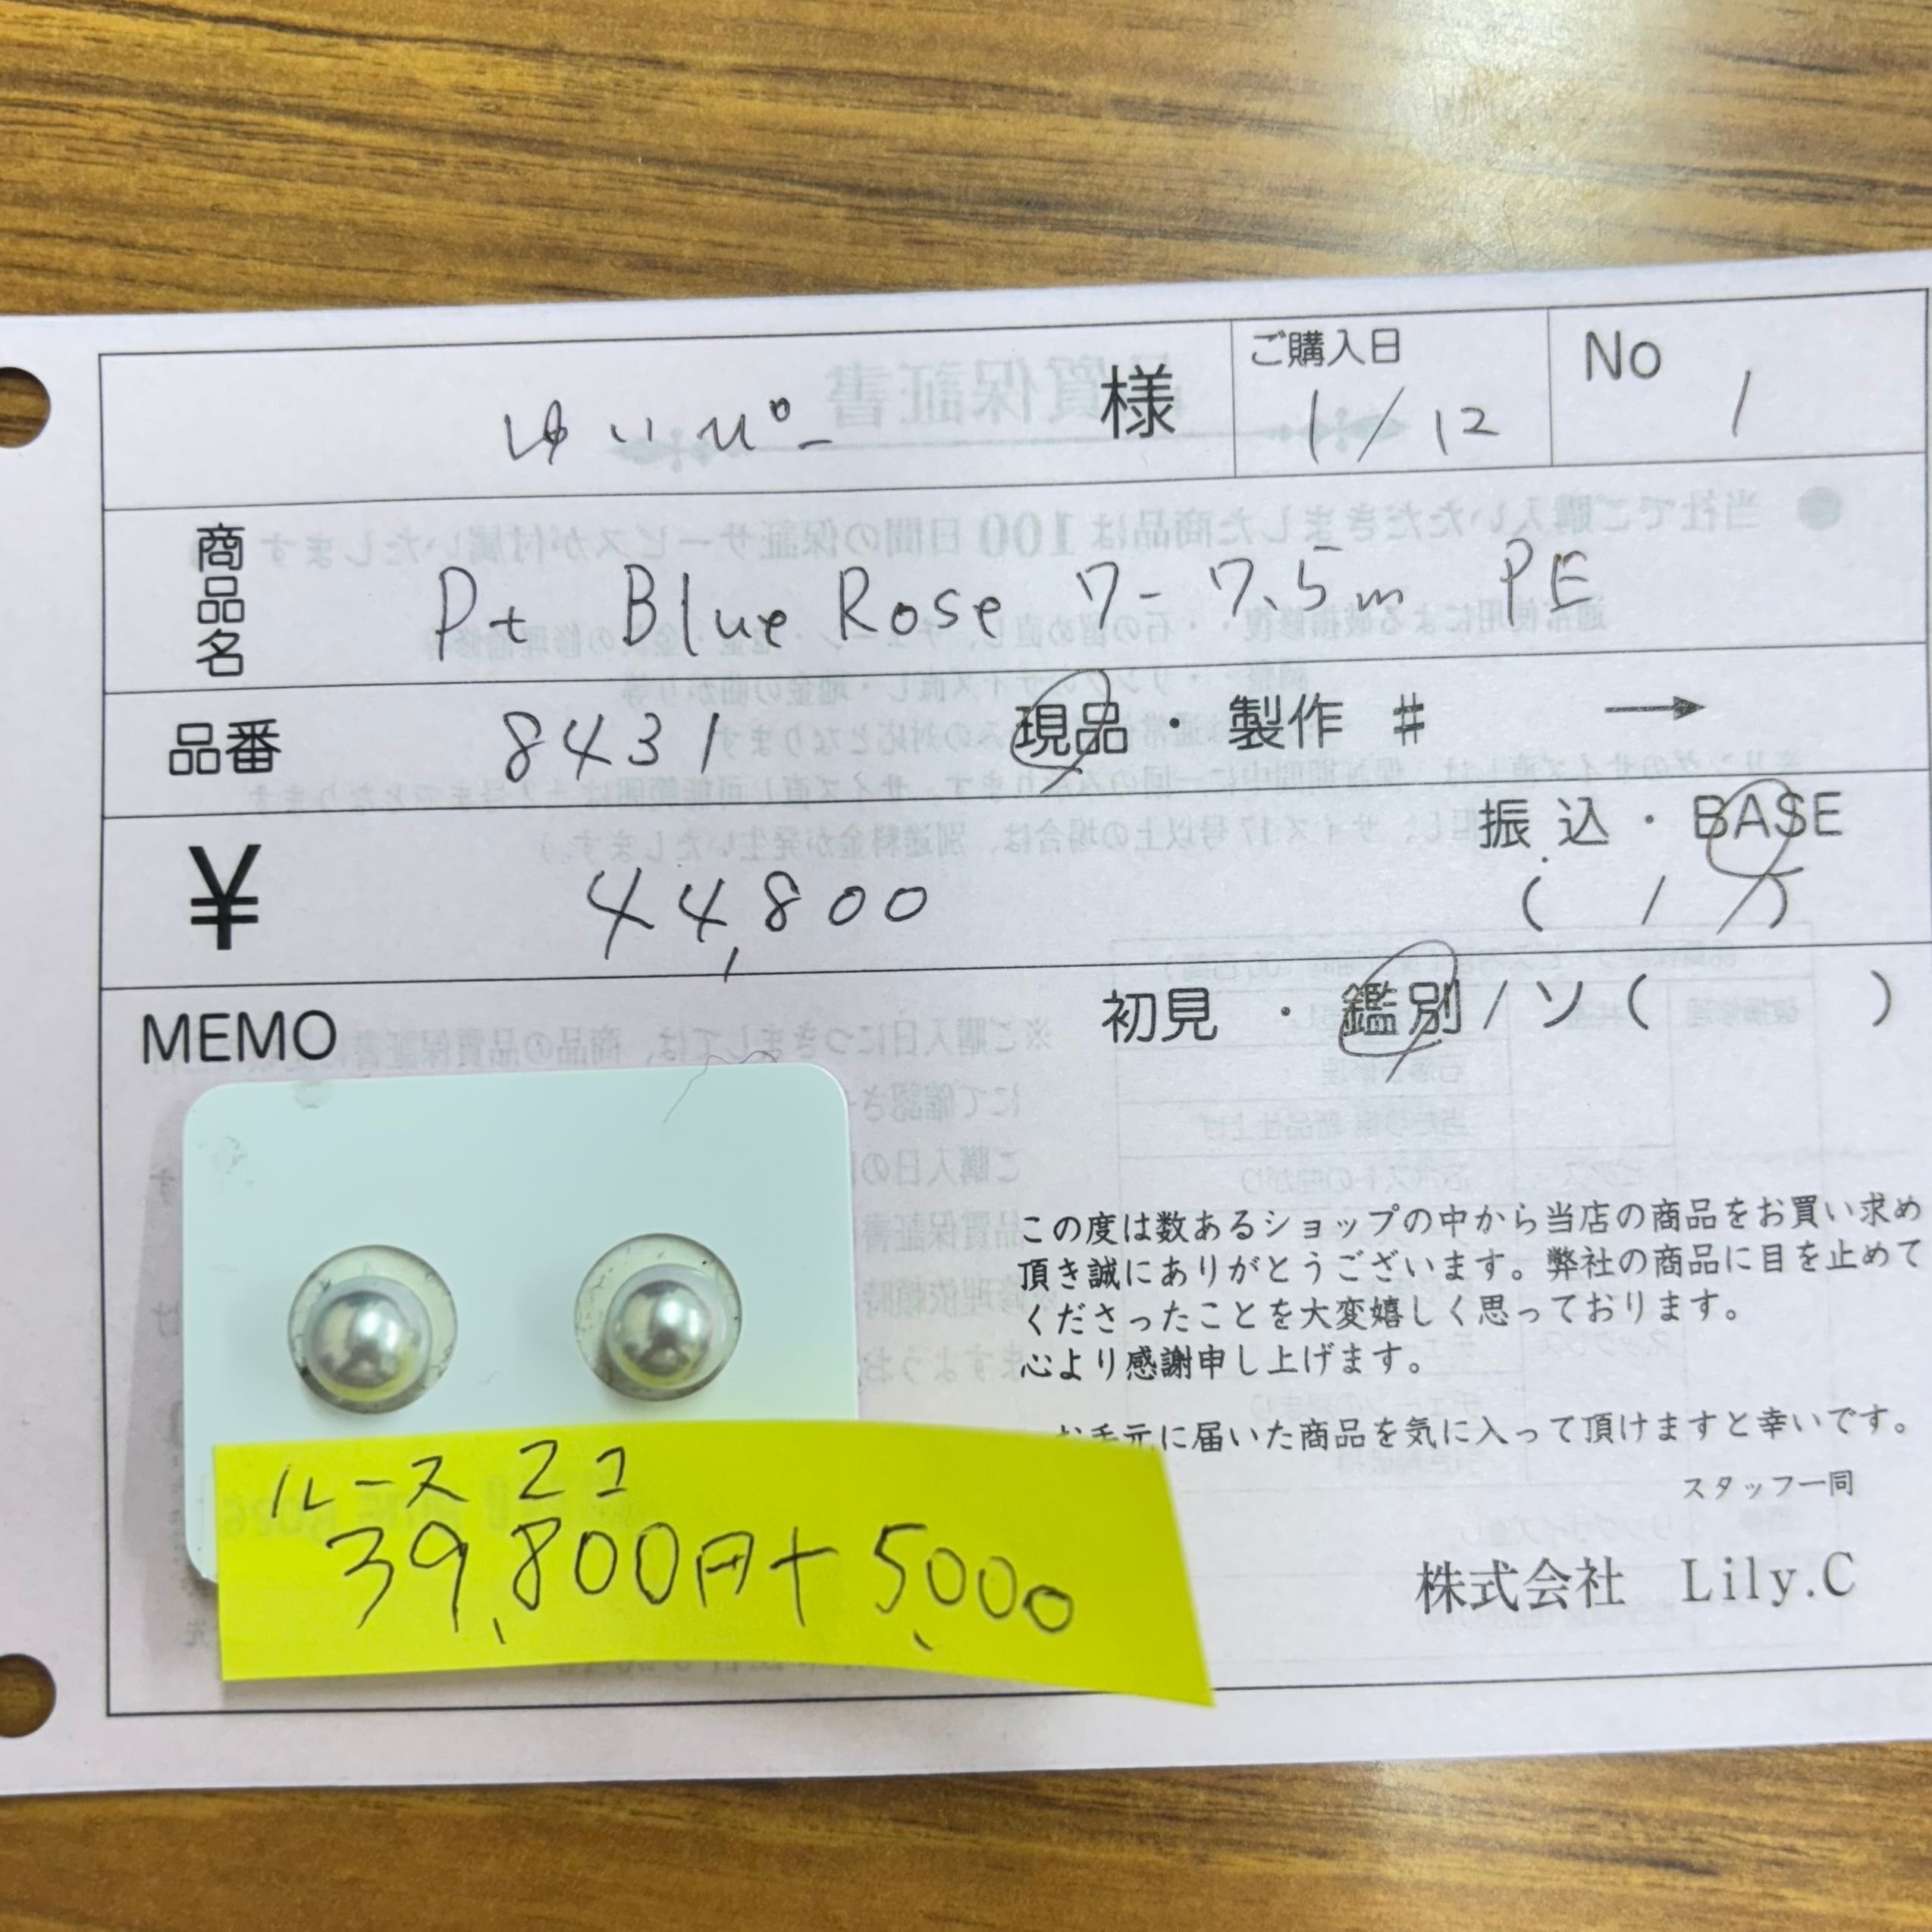 ゆいぴー 様
ご購入日 1/12
No 1
商品名 Pt Blue Rose 7-7.5m PE
品番 8431 現品・製作 # →
¥ 44,800
振込・BASE
( / )
MEMO
初見・鑑別/ソ( )
この度は数あるショップの中から当店の商品をお買い求め
頂き誠にありがとうございます。弊社の商品に目を止めて
くださったことを大変嬉しく思っております。
心より感謝申し上げます。
お手元に届いた商品を気に入って頂けますと幸いです。
スタッフ一同
株式会社 Lily.C
ルース 2コ
39,800円+5,000